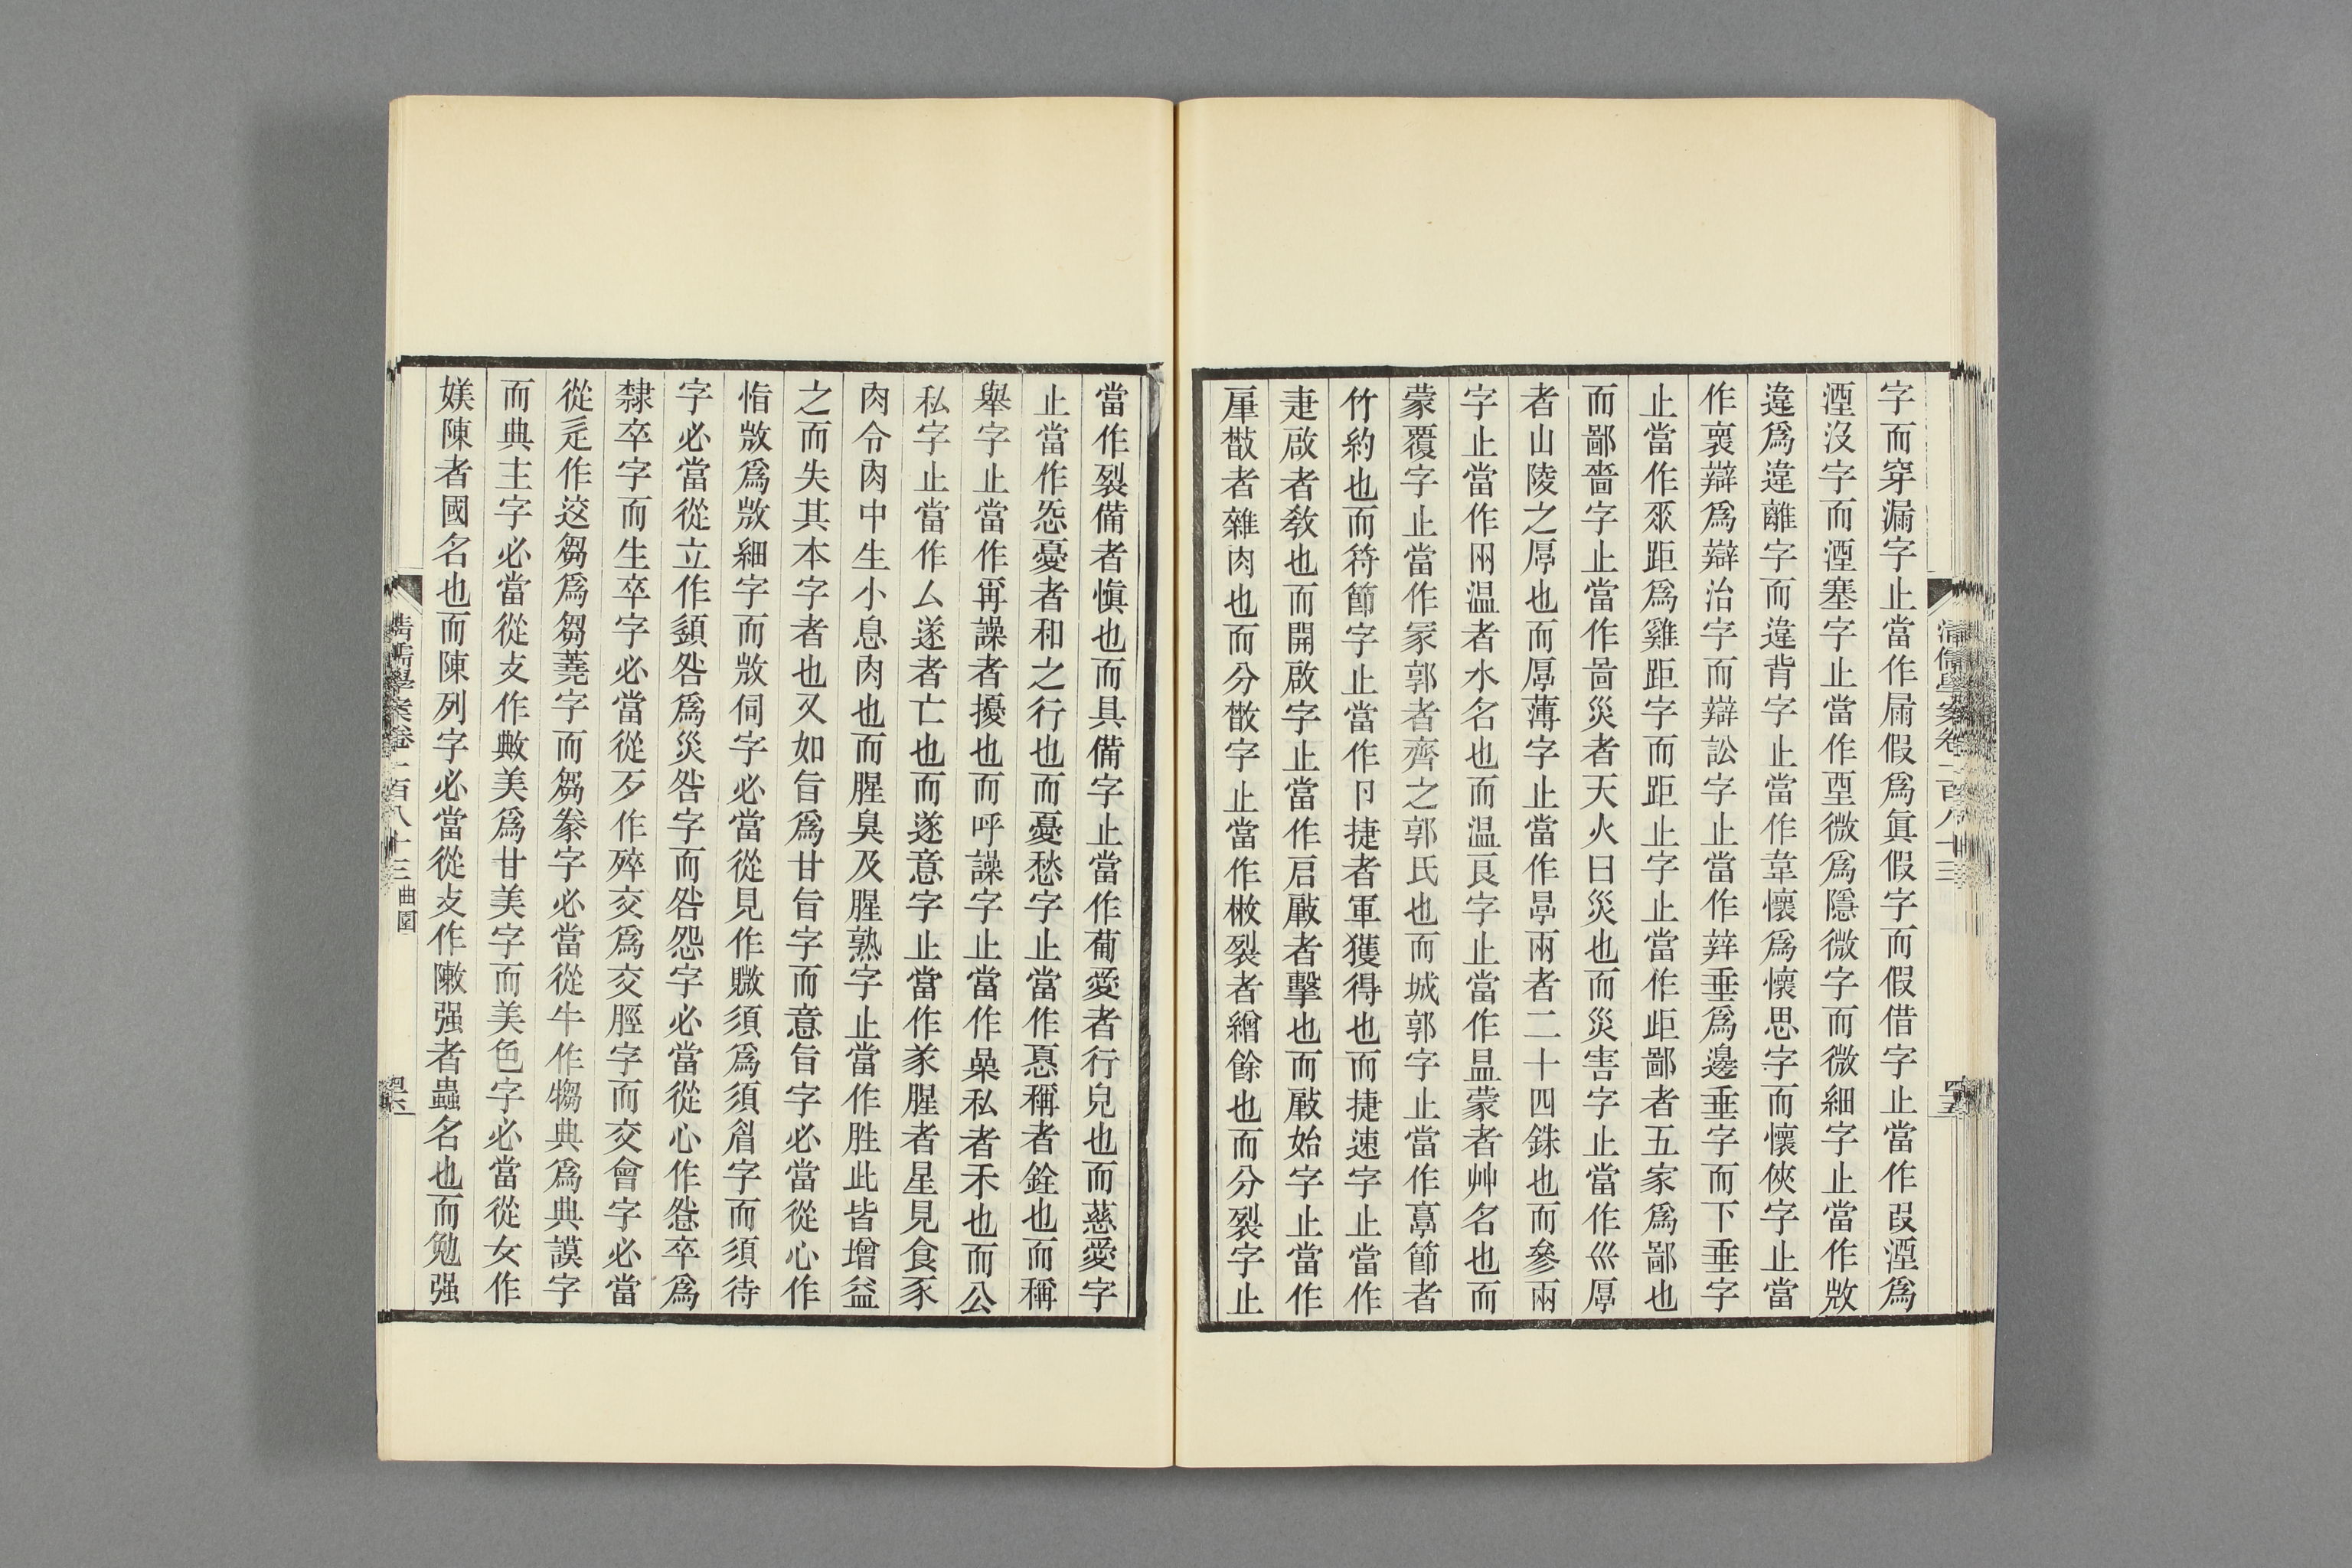 清儒學案卷一百八十三
字而穿漏字止當作屚假爲眞假字而假借字止當作叚湮爲
湮沒字而湮塞字止當作垔微爲隱微字而微細字止當作敚
違爲違離字而違背字止當作韋懷爲懷思字而懷俠字止當
作褱辯爲辯治字而辯訟字止當作辡垂爲邊垂字而下垂字
止當作𠂹距爲雞距字而距止字止當作歫鄙者五家爲鄙也
而鄙嗇字止當作啚災者天火曰災也而災害字止當作巛厚
者山陵之厚也而厚薄字止當作㫗兩者二十四銖也而參兩
字止當作㒳温者水名也而温良字止當作昷蒙者艸名也而
蒙覆字止當作冡郭者齊之郭氏也而城郭字止當作𩫖節者
竹約也而符節字止當作卪捷者軍獲得也而捷速字止當作
疌啟者敎也而開啟字止當作启㪃者擊也而㪃始字止當作
肁散者雜肉也而分散字止當作㪔裂者繒餘也而分裂字止
當作𠛱備者愼也而具備字止當作𤰇愛者行皃也而慈愛字
止當作㤅憂者和之行也而憂愁字止當作𢝊稱者銓也而稱
舉字止當作爯譟者擾也而呼譟字止當作喿私者禾也而公
私字止當作厶遂者亡也而遂意字止當作㒸腥者星見食豕
肉令肉中生小息肉也而腥臭及腥熟字止當作胜此皆增益
之而失其本字者也又如旨爲甘旨字而意旨字必當從心作
恉敚爲敚細字而敚伺字必當從見作覹須爲須眉字而須待
字必當從立作䇓咎爲災咎字而咎怨字必當從心作㤽卒爲
隸卒字而生卒字必當從歹作殚交爲交脛字而交會字必當
從辵作䢒芻爲芻蕘字而芻豢字必當從牛作犓典爲典謨字
而典主字必當從攴作敟美爲甘美字而美色字必當從女作
媄陳者國名也而陳列字必當從攴作敶强者蟲名也而勉强
清儒學案卷一百八十三 曲園